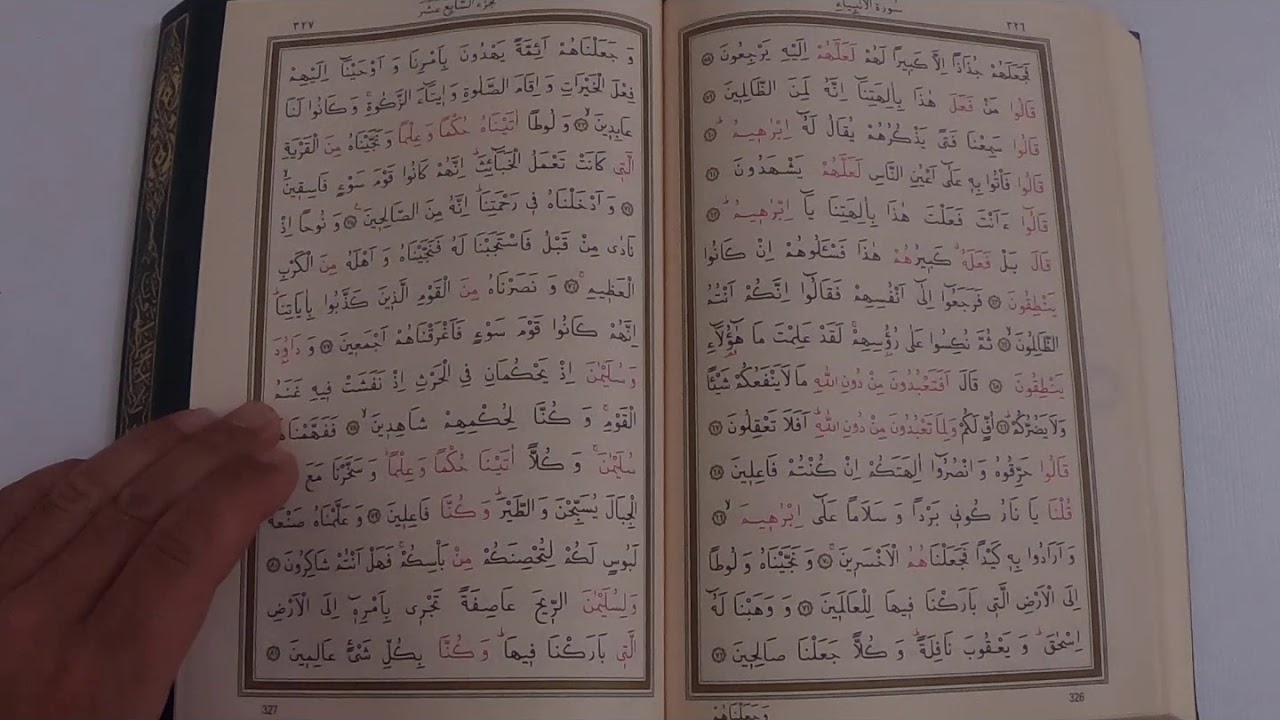 سورة الأنبياء
٣٢٦
فَجَعَلَهُمْ جُذَاذاً اِلَّا كَبٖيراً لَهُمْ لَعَلَّهُمْ اِلَيْهِ يَرْجِعُونَ ﴿٥٨﴾
قَالُوا مَنْ فَعَلَ هٰذَا بِاٰلِهَتِنَٓا اِنَّهُ لَمِنَ الظَّالِمٖينَ ﴿٥٩﴾
قَالُوا سَمِعْنَا فَتًى يَذْكُرُهُمْ يُقَالُ لَهُٓ اِبْرٰهٖيمُ ﴿٦٠﴾
قَالُوا فَأْتُوا بِهٖ عَلٰٓى اَعْيُنِ النَّاسِ لَعَلَّهُمْ يَشْهَدُونَ ﴿٦١﴾
قَالُٓوا ءَاَنْتَ فَعَلْتَ هٰذَا بِاٰلِهَتِنَا يَٓا اِبْرٰهٖيمُ ﴿٦٢﴾
قَالَ بَلْ فَعَلَهُ كَبٖيرُهُمْ هٰذَا فَسْـَٔلُوهُمْ اِنْ كَانُوا
يَنْطِقُونَ ﴿٦٣﴾ فَرَجَعُٓوا اِلٰٓى اَنْفُسِهِمْ فَقَالُٓوا اِنَّكُمْ اَنْتُمُ
الظَّالِمُونَ ﴿٦٤﴾ ثُمَّ نُكِسُوا عَلٰى رُؤُسِهِمْ لَقَدْ عَلِمْتَ مَا هٰٓؤُلَٓاءِ
يَنْطِقُونَ ﴿٦٥﴾ قَالَ اَفَتَعْبُدُونَ مِنْ دُونِ اللّٰهِ مَا لَا يَنْفَعُكُمْ شَيْـٔاً
وَلَا يَضُرُّكُمْ ﴿٦٦﴾ اُفٍّ لَكُمْ وَلِمَا تَعْبُدُونَ مِنْ دُونِ اللّٰهِ اَفَلَا تَعْقِلُونَ ﴿٦٧﴾
قَالُوا حَرِّقُوهُ وَ انْصُرُٓوا اٰلِهَتَكُمْ اِنْ كُنْتُمْ فَاعِلٖينَ ﴿٦٨﴾
قُلْنَا يَا نَارُ كُونٖي بَرْداً وَ سَلَاماً عَلٰٓى اِبْرٰهٖيمَ ﴿٦٩﴾
وَ اَرَادُوا بِهٖ كَيْداً فَجَعَلْنَاهُمُ الْاَخْسَرٖينَ ﴿٧٠﴾ وَ نَجَّيْنَاهُ وَ لُوطاً
اِلَى الْاَرْضِ الَّتٖي بَارَكْنَا فٖيهَا لِلْعَالَمٖينَ ﴿٧١﴾ وَ وَهَبْنَا لَهُٓ
اِسْحٰقَ وَ يَعْقُوبَ نَافِلَةً وَ كُلًّا جَعَلْنَا صَالِحٖينَ ﴿٧٢﴾
وَجَعَلْنَاهُمْ
326
الجزء السابع عشر
٣٢٧
وَ جَعَلْنَاهُمْ اَئِمَّةً يَهْدُونَ بِاَمْرِنَا وَ اَوْحَيْنَٓا اِلَيْهِمْ
فِعْلَ الْخَيْرَاتِ وَ اِقَامَ الصَّلٰوةِ وَ اٖيتَٓاءَ الزَّكٰوةِ وَ كَانُوا لَنَا
عَابِدٖينَ ﴿٧٣﴾ وَ لُوطاً اٰتَيْنَاهُ حُكْماً وَ عِلْماً وَ نَجَّيْنَاهُ مِنَ الْقَرْيَةِ
الَّتٖي كَانَتْ تَعْمَلُ الْخَبَٓائِثَ اِنَّهُمْ كَانُوا قَوْمَ سَوْءٍ فَاسِقٖينَ
﴿٧٤﴾ وَ اَدْخَلْنَاهُ فٖي رَحْمَتِنَا اِنَّهُ مِنَ الصَّالِحٖينَ ﴿٧٥﴾ وَ نُوحاً اِذْ
نَادٰى مِنْ قَبْلُ فَاسْتَجَبْنَا لَهُ فَنَجَّيْنَاهُ وَ اَهْلَهُ مِنَ الْكَرْبِ
الْعَظٖيمِ ﴿٧٦﴾ وَ نَصَرْنَاهُ مِنَ الْقَوْمِ الَّذٖينَ كَذَّبُوا بِاٰيَاتِنَا
اِنَّهُمْ كَانُوا قَوْمَ سَوْءٍ فَاَغْرَقْنَاهُمْ اَجْمَعٖينَ ﴿٧٧﴾ وَ دَاوُ۫دَ
وَ سُلَيْمٰنَ اِذْ يَحْكُمَانِ فِي الْحَرْثِ اِذْ نَفَشَتْ فٖيهِ غَنَمُ
الْقَوْمِ وَ كُنَّا لِحُكْمِهِمْ شَاهِدٖينَ ﴿٧٨﴾ فَفَهَّمْنَاهَا
سُلَيْمٰنَ وَ كُلًّا اٰتَيْنَا حُكْماً وَ عِلْماً وَ سَخَّرْنَا مَعَ
الْجِبَالَ يُسَبِّحْنَ وَ الطَّيْرَ وَ كُنَّا فَاعِلٖينَ ﴿٧٩﴾ وَ عَلَّمْنَاهُ صَنْعَةَ
لَبُوسٍ لَكُمْ لِتُحْصِنَكُمْ مِنْ بَأْسِكُمْ فَهَلْ اَنْتُمْ شَاكِرُونَ ﴿٨٠﴾
وَ لِسُلَيْمٰنَ الرّٖيحَ عَاصِفَةً تَجْرٖي بِاَمْرِهٖٓ اِلَى الْاَرْضِ
الَّتٖي بَارَكْنَا فٖيهَا وَ كُنَّا بِكُلِّ شَيْءٍ عَالِمٖينَ ﴿٨١﴾
327